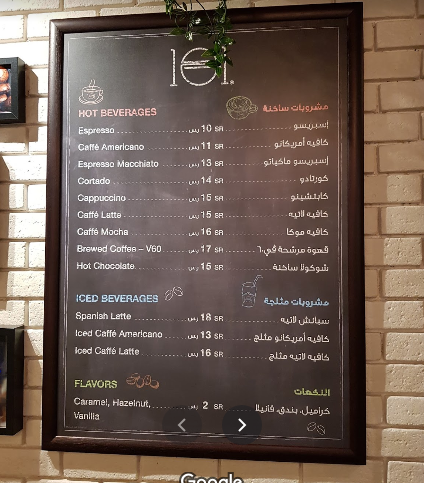 101.
HOT BEVERAGES مشروبات ساخنة
Espresso 10 SR ر.س إسبريسو
Caffé Americano 11 SR ر.س كافيه أمريكانو
Espresso Macchiato 13 SR ر.س إسبريسو ماكياتو
Cortado 14 SR ر.س كورتادو
Cappuccino 15 SR ر.س كابتشينو
Caffé Latte 15 SR ر.س كافيه لاتيه
Caffé Mocha 16 SR ر.س كافيه موكا
Brewed Coffee – V60 17 SR ر.س قهوة مرشحة في٦٠
Hot Chocolate 15 SR ر.س شوكولا ساخنة
ICED BEVERAGES مشروبات مثلجة
Spanish Latte 18 SR ر.س سبانش لاتيه
Iced Caffé Americano 13 SR ر.س كافيه أمريكانو مثلج
Iced Caffé Latte 16 SR ر.س كافيه لاتيه مثلج
FLAVORS النكهات
Caramel, Hazelnut, 2 SR ر.س كراميل، بندق، فانيلا
Vanilla
Google